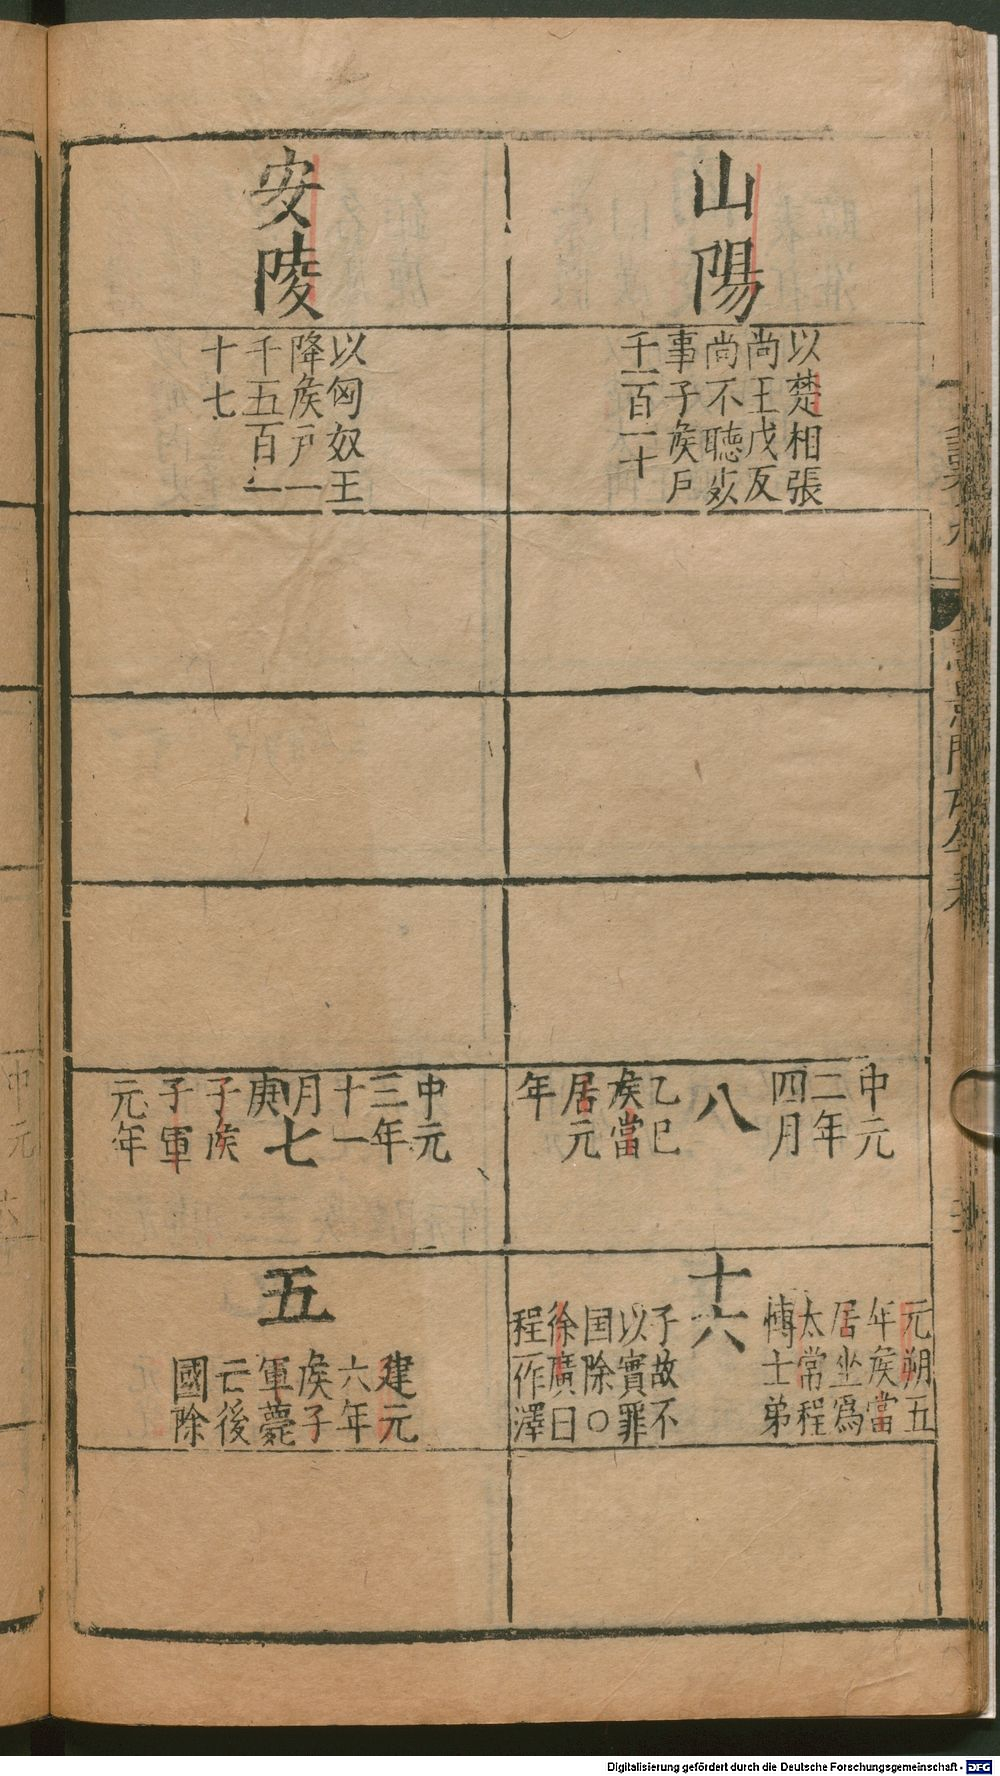 山陽
以楚相張
尚王戊反
尚不聴㱕
事子矦戶
千一百一十
中元
二年
四月
八
乙巳
矦當
居元
年
十六
元朔五
年矦當
居坐爲
太常程
博士弟
子故不
以實罪
国除〇
徐廣曰
程一作澤
安陵
以匈奴王
降矦戶一
千五百一
十七
中元
三年
十一
月
庚
七
子矦
子軍
元年
五
建元
六年
矦子
軍薨
亡後
國除
Digitalisierung gefördert durch die Deutsche Forschungsgemeinschaft - DFG